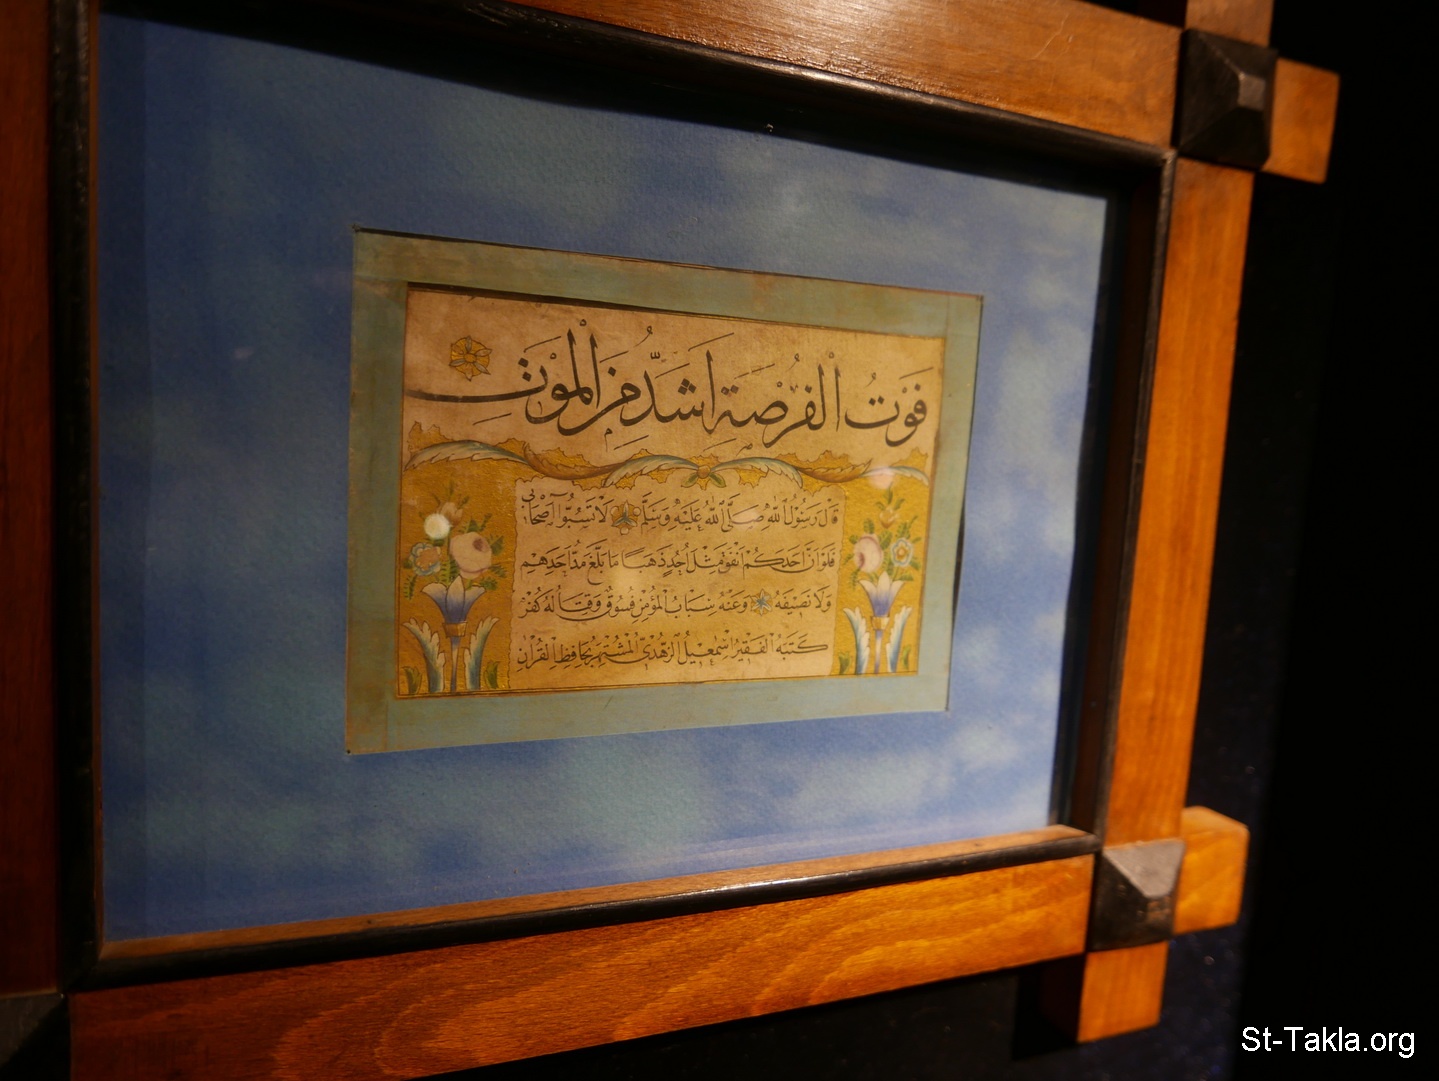 فَوْتُ الْفُرْصَةِ اَشَدُّ مِنَ الْمَوْتِ
قَالَ رَسُولُ اللّٰهِ صَلَّى اللّٰهُ عَلَيْهِ وَسَلَّمَ لَا تَسُبُّوا اَصْحَابِي
فَلَوْ اَنَّ اَحَدَكُمْ اَنْفَقَ مِثْلَ اُحُدٍ ذَهَبًا مَا بَلَغَ مُدَّ اَحَدِهِمْ
وَلَا نَصِيفَهُ وَعَنْهُ سِبَابُ الْمُؤْمِنِ فُسُوقٌ وَقِتَالُهُ كُفْرٌ
كَتَبَهُ الْفَقِيرُ اِسْمٰعِيلُ الزُّهْدِيُّ الْمُشْتَهِرُ بِحَافِظِ الْقُرْاٰنِ
St-Takla.org